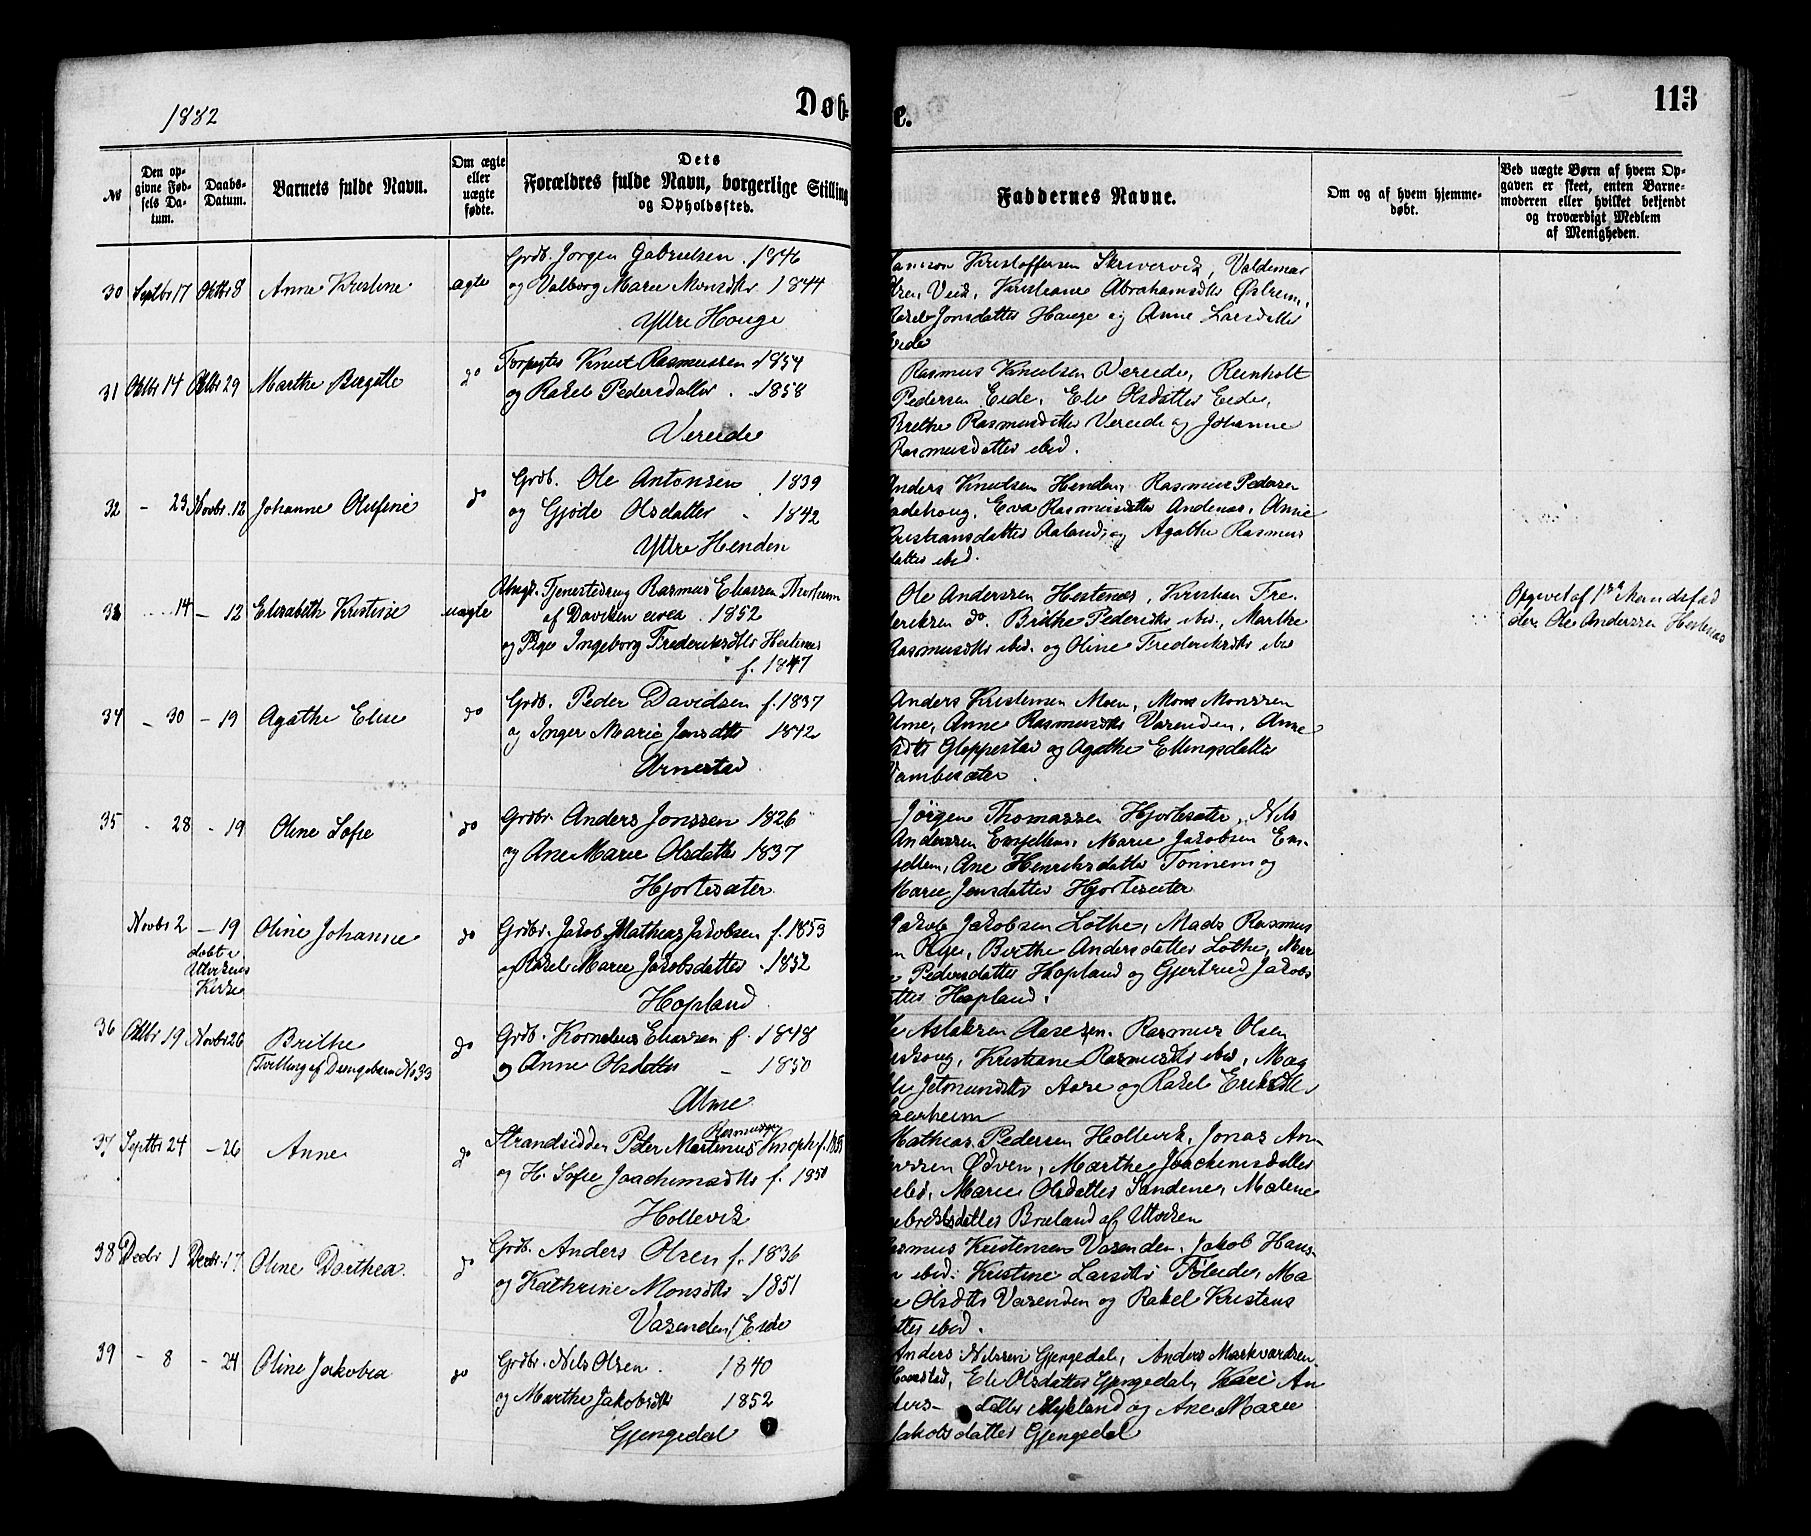 1882
Døb-
e.
113
№
Den op-
givne Fød-
sels Da-
tum.
Daabs-
Datum.
Barnets fulde Navn.
Om ægte
eller
uægte
fødte.
Dets
Forældres fulde Navn, borgerlige Stilling
og Opholdssted.
Faddernes Navne.
Om og af hvem hjemme-
døbt.
Ved uægte Børn af hvem Op-
gaven er skeet, enten Barne-
moderen eller hvilket bekjendt
og troværdigt Medlem
af Menigheden.
30 Septbr 17 Oktbr 8 Anne Kristine ægte
Grdb. Jørgen Gabrielsen . 1846
og Valborg Marie Monsdtr 1844
Ytre Houge
Kristoffersen Skrivervik, Valdemar
Kristiane Abrahamsdtr Østrem,
Jonsdatter Hauge og Anne Larsdatter
31 Oktbr 14 Oktbr 29 Marthe Birgitte do
Knut Rasmussen 1854
og Rakel Pedersdatter . 1858
Vereide
Rasmus Knutsen Vereide, Reinholt
Pedersen Eide, Eli Olsdatter Eide,
Brethe Rasmusdatter Vereide og Johanne
Rasmusdatter ibid.
32 - 23 Novbr. 12 Johanne Olufine do
Grdb. Ole Antonsen . 1839
og Gjøde Olsdatter - 1842
Ytre Henden
Anders Knutsen Henden, Rasmus Pedersen
Eva Rasmusdatter Andenæs, Anne
Kristiansdatter Aaland, og Agathe Rasmus
datter ibid.
33 14 - 12 Elisabeth Kristine uægte
Ungk. Tjenestedreng Rasmus Eliassen
af Daviken circa . 1852
og Pige Ingeborg Frederiksdtr Hestenes
f. 1847
Ole Anderssen Hestenæs, Kristian Fre-
deriksen do. Brithe Pedersdtr ibid., Marthe
Rasmusdtr ibid. og Oline Frederiksdtr ibid
Opgivet af 1ste Mandsfad
der Ole Anderssen Hestenæs
34 - 30 - 19 Agathe Elise do
Grdb. Peder Davidsen f. 1837
og Inger Marie Jensdtr 1842
Arnestad
Anders Kristensen Moen, Mons Monssen
Alme, Anne Rasmusdtr Varenden, Anne
Gloppestad og Agathe Ellingsdatter
35 - 28 - 19 Oline Sofie do
Grdbr Anders Jonssen 1826
og Ane Marie Olsdatter 1837
Hjortesæter
Jørgen Thomassen Hjortesæter, Nils
Anderssen Emjellem, Marie Jakobsen Em-
jellem, Ane Henriksdatter Tonnem og
Marie Jensdatter Hjortesæter
Novbr 2 - 19 Oline Johanne do
døbt i
Utvikens
Kirke
Grdbr. Jakob Mathias Jakobsen f. 1853
og Rakel Marie Jakobsdatter . 1852
Hopland
Jakob Jakobsen Lothe, Mads Rasmus
en Rye, Birthe Andersdatter Lothe, Mar
Pedersdatter Hopland og Gjertrud Jakobs
datter Hopland.
36 Oktbr 19 Novbr 26 Brithe do
(Tvilling af Drengebarn No 33
Grdb. Kornelius Eliassen f. 1848
og Anne Olsdatter - 1850
Alme
Aslaksen Aasesen. Rasmus Olsen
Kristiane Rasmusdtr ibid, Mag
Jetmundsdtr Aase og Rakel Eriksdtr
37 Septbr 24 - 26 Anne do
Rasmussen
Strandsidder Peter Martinus Knoph f. 1855
og H. Sofie Joachimsdtr f. 1850
Hollevik
Mathias Pedersen Hollevik, Jonas An-
derssen Ødven, Marthe Joachimsdatter
ibid, Marie Olsdatter Sandene, Malene
datter Bræland af Utviken
38 Decbr 1 Decbr. 17 Oline Dorthea. do
Grdb. Anders Olsen f. 1836
og Kathrine Monsdtr . 1851
Varenden / Eide
Rasmus Kristensen Varenden, Jakob Hans-
en ibid. Kristine Larsdtr Ma
Olsdtr Varenden og Rakel Kristens
datter ibid.
39 - 8 - 24 Oline Jakobea do
Grdbr. Nils Olsen . 1840
og Marthe Jakobsdtr 1852
Gjengedal
Anders Nilssen Gjengedal, Anders Markvardsen
Eli Olsdatter Gjengedal, Kari An
ders- datter Mykland og Ane Marie
Jakobsdatter Gjengedal